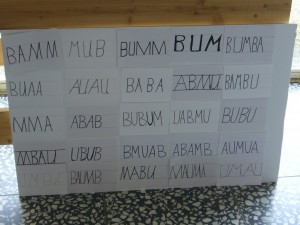 BAMM MUB BUMM BUM BUMBA
BUAA AUAU BABA ABMU BMBU
MMA ABAB BUBUM UABMU BUBU
MBAU UBUB BMUAB ABAMB AUMUA
BAUMB MABU UMAU